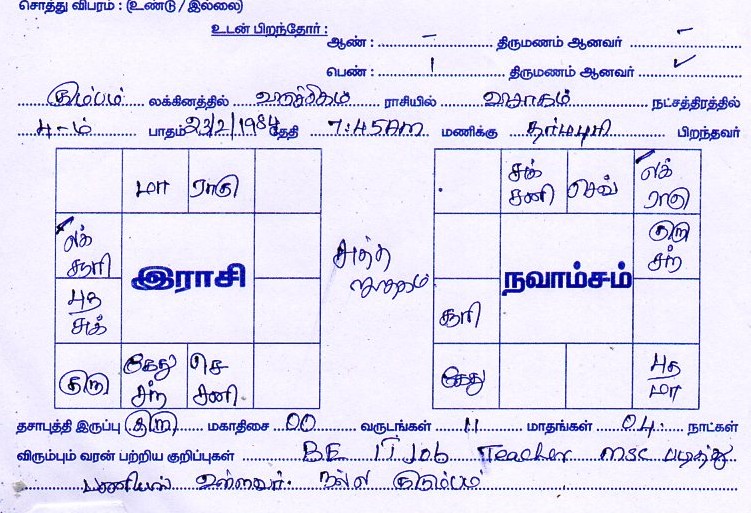 சொத்து விபரம் : (உண்டு / இல்லை)
உடன் பிறந்தோர் :
ஆண் : – திருமணம் ஆனவர் –
பெண் : 1 திருமணம் ஆனவர் ✓
கும்பம் லக்கினத்தில் விருச்சிகம் ராசியில் விசாகம் நட்சத்திரத்தில்
4-ம் பாதம் 23/2/1984 தேதி 7:45AM மணிக்கு தர்மபுரி பிறந்தவர்
மா ராகு
லக் சூரி
புத சுக்
குரு கேது சந் செ சனி
இராசி
சுத்த ஜாதகம்
சுக் சனி செவ் லக் ராகு
குரு சந்
சூரி
கேது புத மா
நவாம்சம்
தசாபுத்தி இருப்பு குரு மகாதிசை 00 வருடங்கள் 11 மாதங்கள் 04 நாட்கள்
விரும்பும் வரன் பற்றிய குறிப்புகள் BE IT Job Teacher MSC படித்து
பணியில் உள்ளவர். நல்ல குடும்பம்